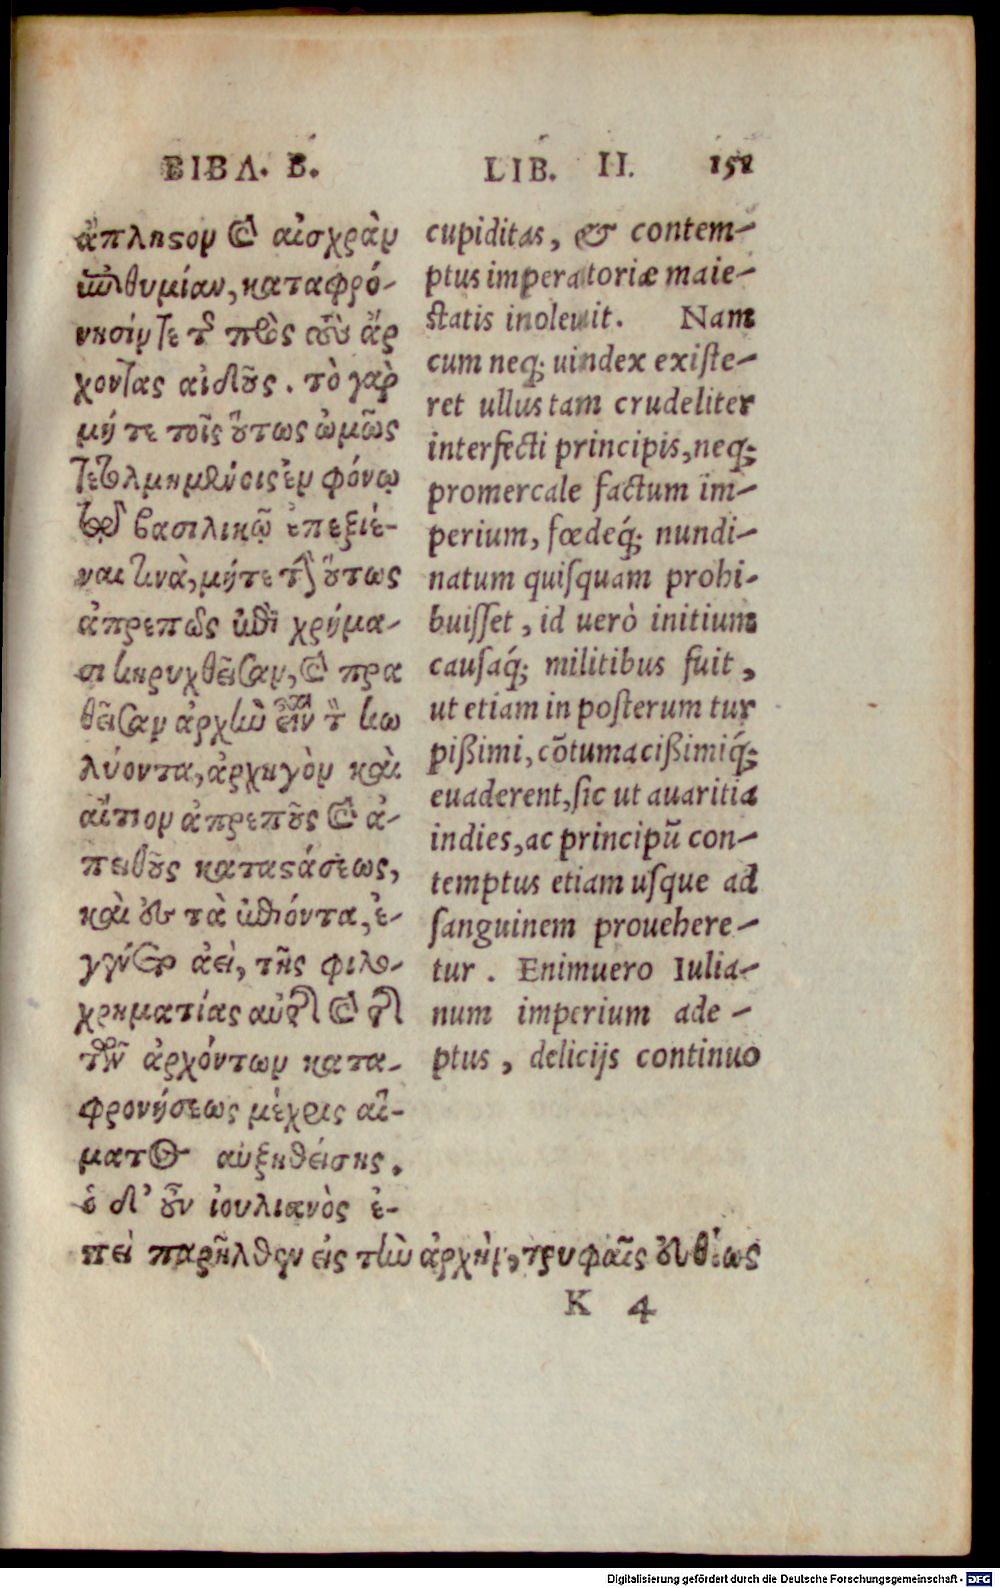 ΒΙΒΛ. Β.
ἄπληστον καὶ αἰσχρὰν
ἐπιθυμίαν, καταφρό-
νησίν τε τ πρὸς τοὺς ἄρ
χοντας αἰδοῦς. τὸ γὰρ
μή τε τοῖς οὕτως ὠμῶς
τετολμημένοις ἐν φόνῳ
τῷ βασιλικῷ ἐπεξιέ-
ναι τινὰ, μήτε τὴν οὕτως
ἀπρεπῶς ἐπὶ χρήμα-
σι κηρυχθεῖσαν, καὶ πρα
θεῖσαν ἀρχὴν εἶναι τ κω
λύοντα, ἀρχηγὸν καὶ
αἴτιον ἀπρεποῦς καὶ ἀ-
πειθοῦς καταστάσεως,
καὶ ἐς τὰ ἐπιόντα, ἐ-
γένετο ἀεὶ, τῆς φιλο-
χρηματίας αὐτῶν καὶ τῆς
τῶν ἀρχόντων κατα-
φρονήσεως μέχρις αἵ-
ματος αὐξηθείσης.
ὁ δ' οὖν ἰουλιανὸς ἐ-
πεὶ παρῆλθεν εἰς τὴν ἀρχὴν, τρυφαῖς εὐθέως
LIB. II. 152
cupiditas, & contem-
ptus imperatoriæ maie-
statis inoleuit. Nam
cum neq; uindex existe-
ret ullus tam crudeliter
interfecti principis, neq;
promercale factum im-
perium, fœdeq́; nundi-
natum quisquam prohi-
buisset, id uerò initium
causaq́; militibus fuit,
ut etiam in posterum tur
pißimi, cõtumacißimiq́;
euaderent, sic ut auaritia
indies, ac principũ con-
temptus etiam usque ad
sanguinem prouehere-
tur. Enimuero Iulia-
num imperium ade-
ptus, delicijs continuo
K 4
Digitalisierung gefördert durch die Deutsche Forschungsgemeinschaft - DFG